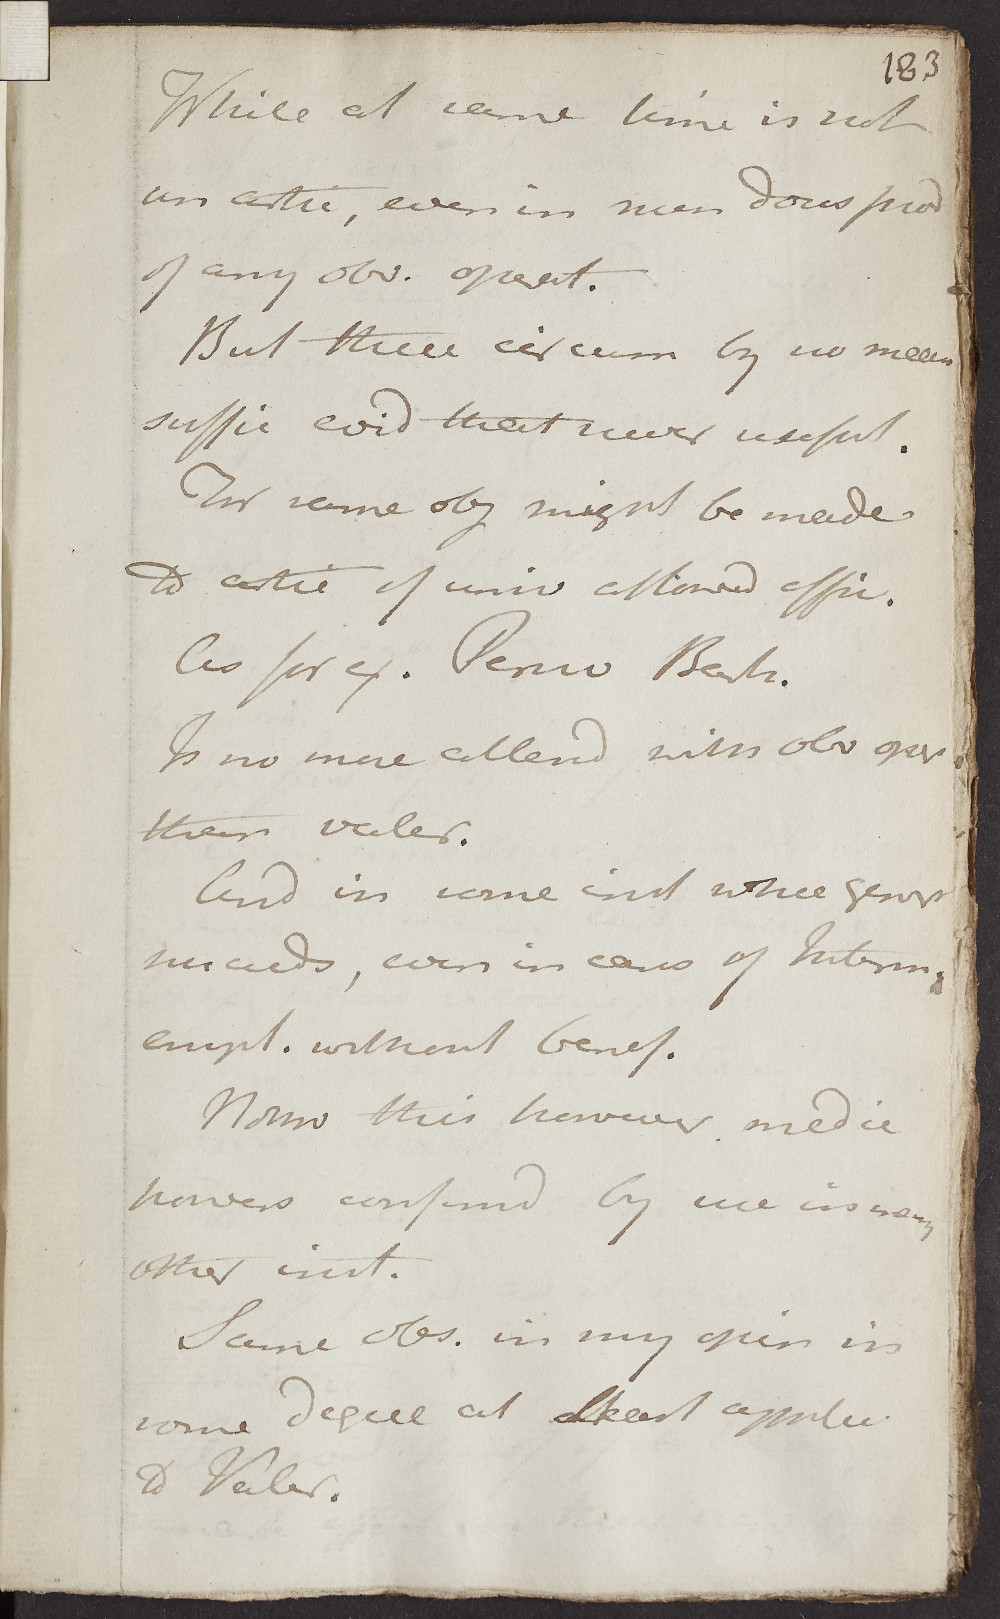 183
While at same time is not
un artic, even in num dous prod
of any obv. operat.
But these circum by no mean
suffic evid that never useful.
For same obj might be made
to artic of univ allowed effic.
As for ex. Peruv Bark.
Is no more attend with obv oper
than valer.
And in some inst where gener
succeeds, even in cases of Interm.
empl. without benef.
Notw this however, medic
powers confirmd by use in many
other inst.
Same obs. in my opin in
some degree at least applic
to Valer.